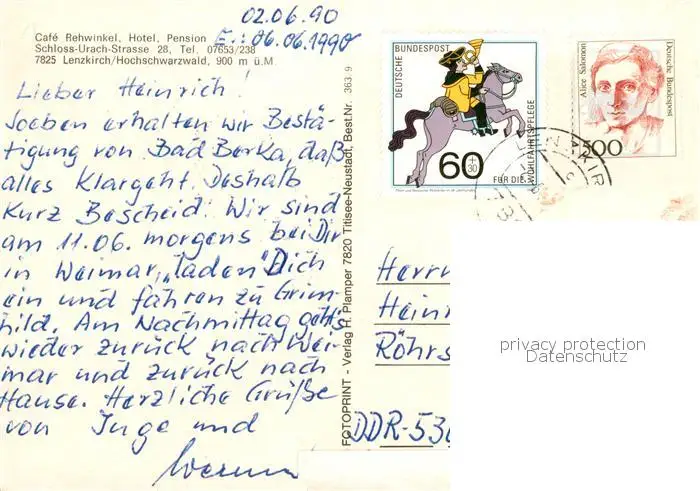 02.06.90
E.: 06.06.1990
Café Rehwinkel, Hotel, Pension
Schloss-Urach-Strasse 28, Tel. 07653/238
7825 Lenzkirch/Hochschwarzwald, 900 m ü.M.
Lieber Heinrich!
Soeben erhalten wir Bestä-
tigung von Bad Berka, daß
alles Klargeht. Deshalb
Kurz Bescheid: Wir sind
am 11.06. morgens bei Dir
in Weimar, "laden" Dich
ein und fahren zu Grim-
hild. Am Nachmittag geht's
wieder zurück nach Wei-
mar und zurück nach
Hause. Herzliche Grüße
von Inge und
Werner
FOTOPRINT - Verlag H. Plamper 7820 Titisee-Neustadt, Best.Nr. 363 9
DEUTSCHE BUNDESPOST
60 + 30
FÜR DIE WOHLFAHRTSPFLEGE
Alice Salomon
Deutsche Bundespost
500
Herrn
Heinr
Röhrs
DDR-530
privacy protection
Datenschutz